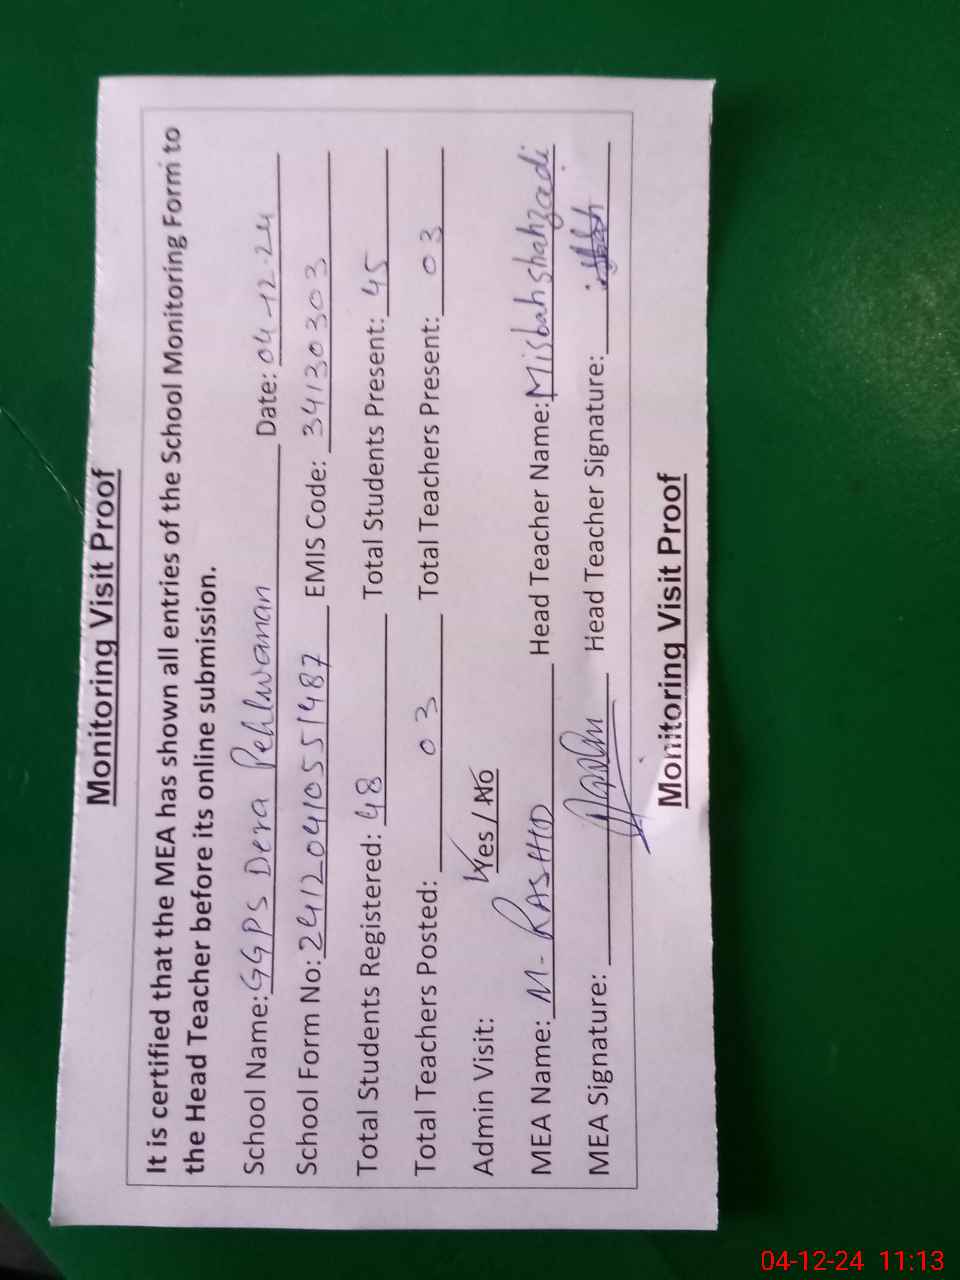 Monitoring Visit Proof
It is certified that the MEA has shown all entries of the School Monitoring Form to
the Head Teacher before its online submission.
School Name: GGPS Dera Pehlwanan Date: 04-12-24
School Form No: 24120410551487 EMIS Code: 34130303
Total Students Registered: 48 Total Students Present: 45
Total Teachers Posted: 03 Total Teachers Present: 03
Admin Visit: Yes / No
MEA Name: M. RASHID Head Teacher Name: Misbah shahzadi
MEA Signature: Head Teacher Signature:
Monitoring Visit Proof
04-12-24 11:13